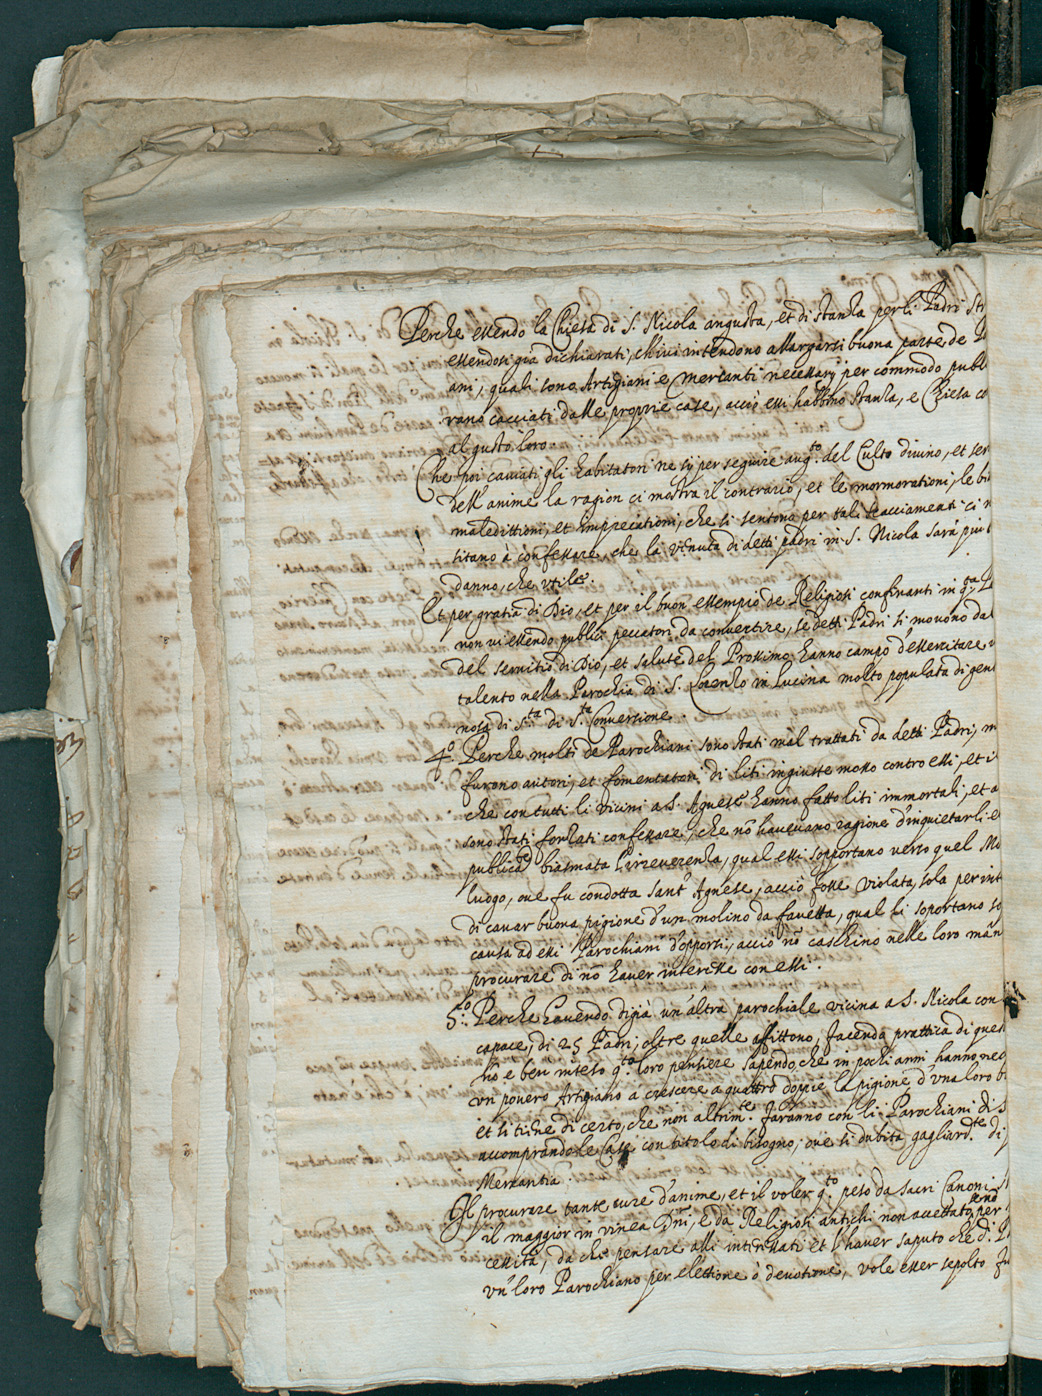 Perche essendo la Chiesa di S. Nicola angusta, et di stanza per li Padri
essendosi già dichiarati, ch'ivi intendono allargarsi buona parte de
ani, quali sono Artigiani e Mercanti necessarij per commodo publ
rano cacciati dalle proprie case, acciò essi habbino stanza, e Chiesa co
al gusto loro.
Che poi cacciati gli habitatori ne sij per seguire aug.to del Culto divino, et ser
dell'anime la ragion ci mostra il contrario, et le mormorationi, le
maledittioni, et imprecationi, che si sentono per tali scacciamenti ci
sitano à confessare, che la venuta di detti padri in S. Nicola sarà più
danno, che utile.
Et per gratia di Dio, et per il buon essempio de Religiosi confinanti in q.ta
non vi essendo publici peccatori da convertire, se detti Padri si movono da
del servitio di Dio, et salute del Prossimo hanno campo d'essercitare
talento nella Parochia di S. Lorenzo in Lucina molto populata di gen
nosa di s.ta di S.ta Conversione.
4.o Perche molti de Parochiani sono stati mal trattati da detti Padri,
furono autori, et fomentatori di liti ingiuste mosse contro essi, et
che con tutti li vicini a S. Agnese hanno fatto liti immortali, et a
sono stati forzati confessare, che nõ havevano ragione d'inquietarli e
public.te biasmata l'irreverenza, qual essi sopportano verso quel
luogo, ove fu condotta sant' Agnese, acciò fosse violata, sola per int
di cavar buona pigione d'un molino da favetta, qual li soportano
causa ad essi Parochiani d'opporsi, acciò nõ caschino nelle loro mãn
procurare di nõ haver interesse con essi.
5.o Perche havendo digià un'altra parochiale vicina a S. Nicola con
capace, di 25 Padri, oltre quelle affittono, facendo prattica di quel
nõ e ben inteso q.to loro pensiere sapendo, che in pochi anni hanno
un povero Artigiano a crescere a quattro doppie la pigione d'una loro
et si tiene di certo, che non altrim.te faranno con li Parochiani di S
accomprando le Case con titolo di bisogno, ove si dubita gagliard.te di
Mercantia.
Il procurare tante cure d'anime, et il voler q.to peso da sacri Canoni
il maggior in vinea Dñi, e da Religiosi antichi non accettato, seno per
cessità, da che pensare alli interessati et l'haver saputo che d.
un loro Parochiano per elettione ò devotione, vole esser sepolto